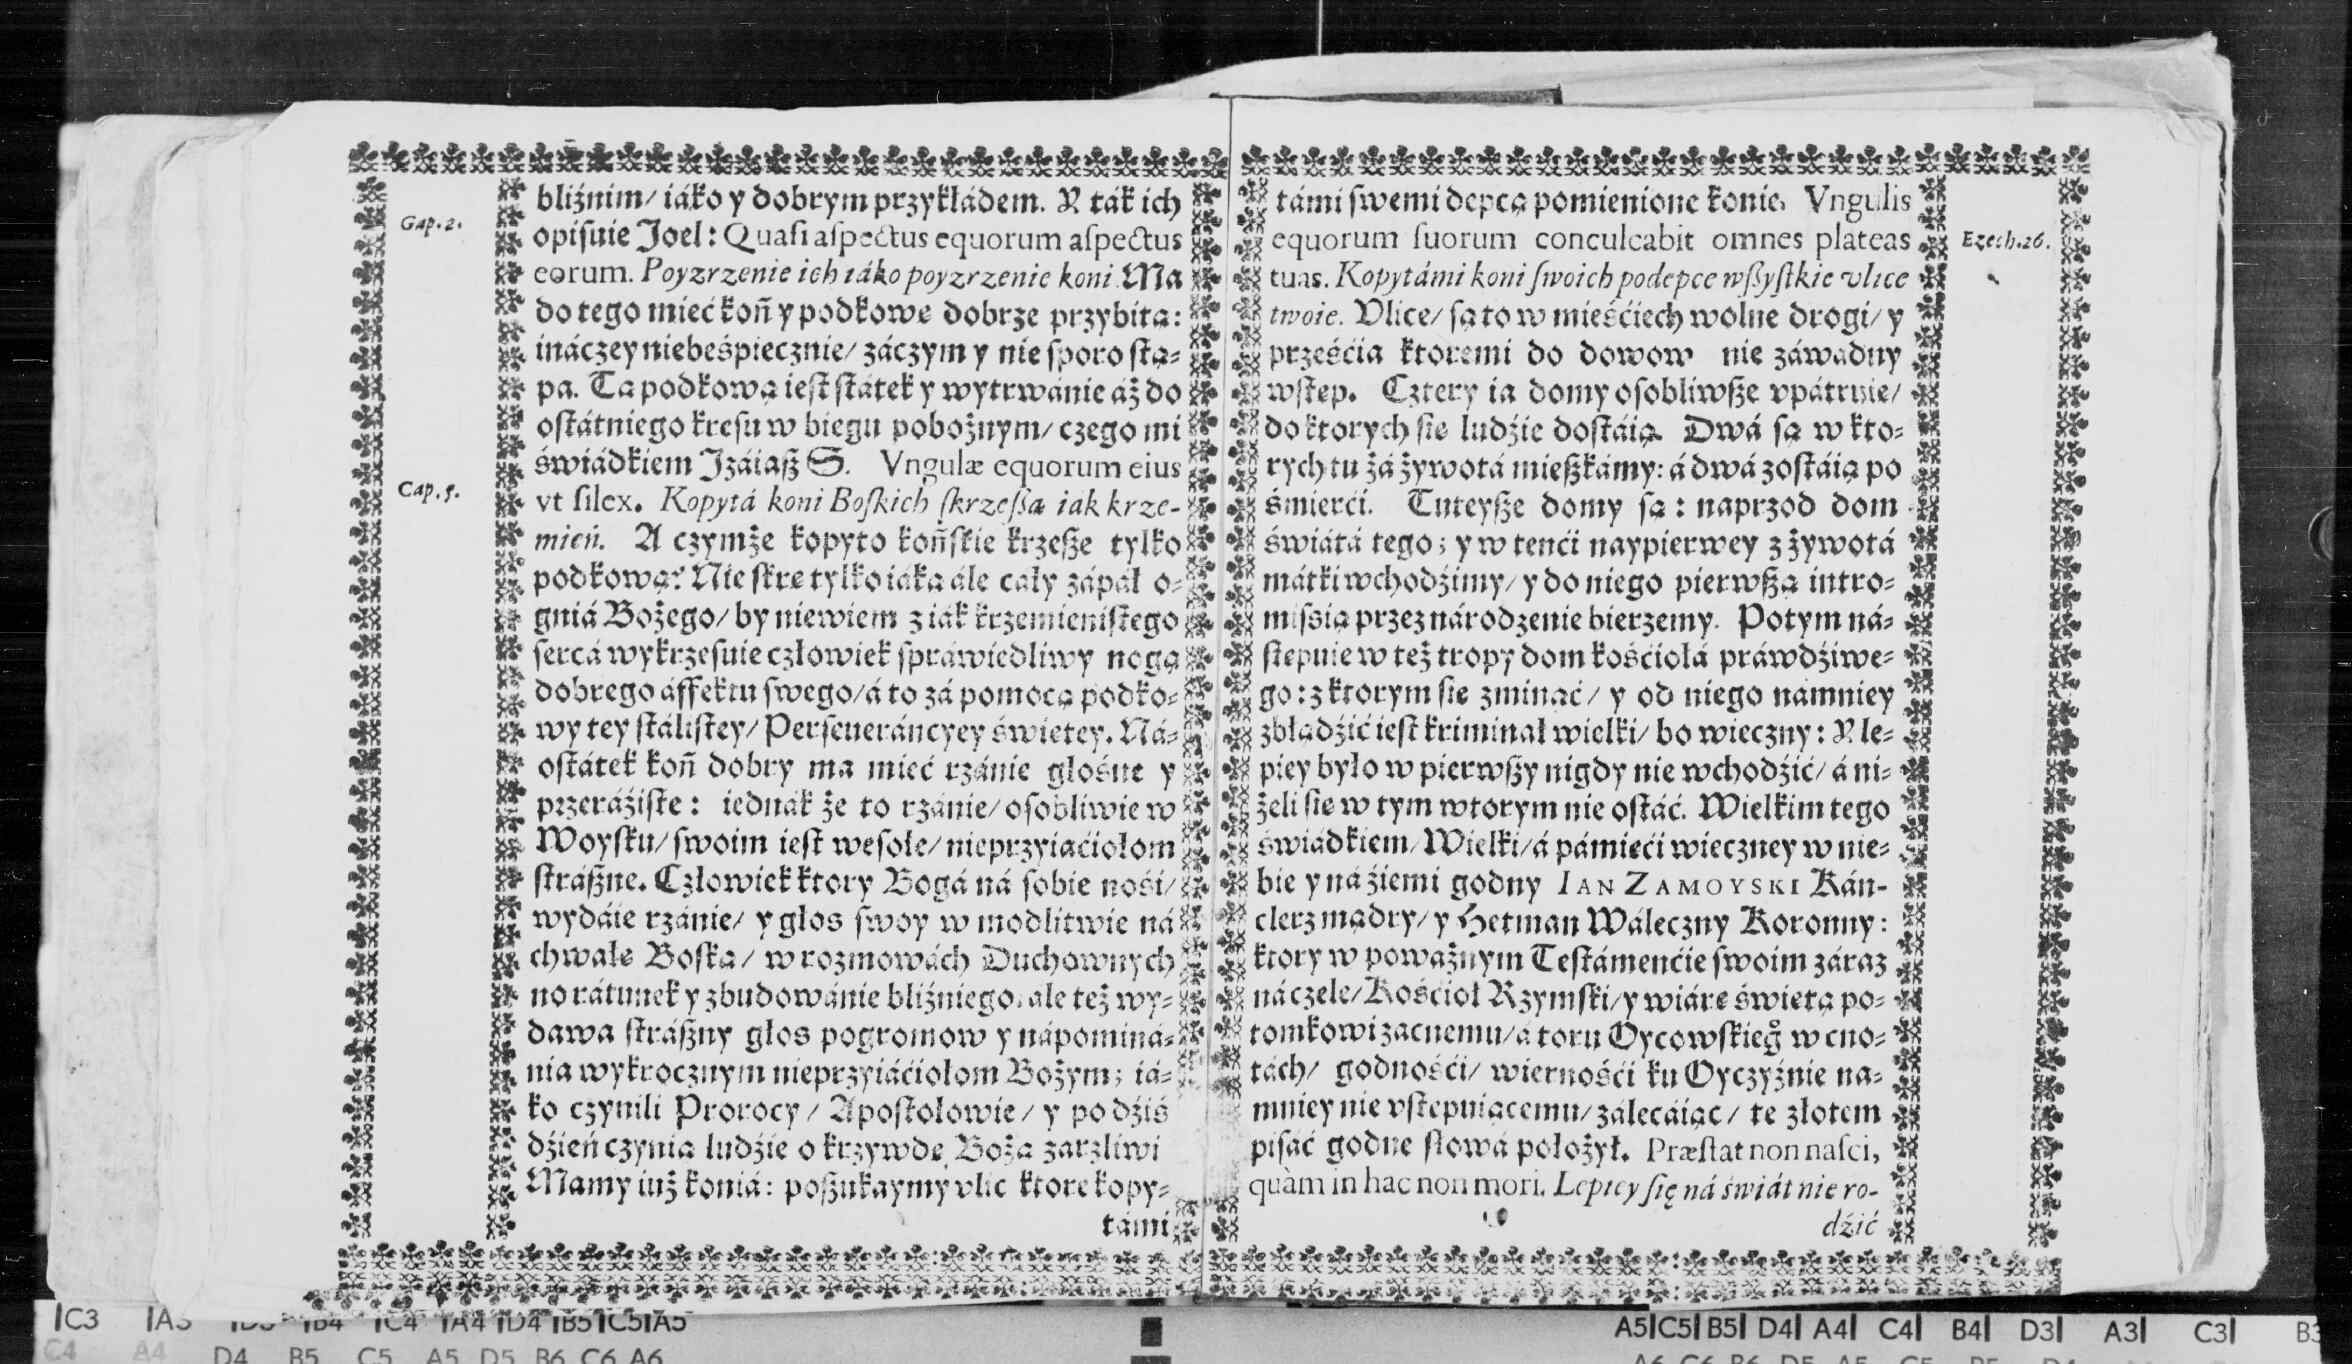 bliźnim/ iáko y dobrym przykłádem. Y ták ich
Gap. 2.
opisuie Joel: Quasi aſpectus equorum aſpectus
eorum. Poyzrzenie ich iáko poyzrzenie koni. Ma
do tego mieć koń y podkowe dobrze przybitą:
ináczey niebeśpiecznie/ záczym y nie sporo stą-
pa. Ta podkową iest státek y wytrwánie áż do
ostátniego kresu w biegu pobożnym/ czego mi
świádkiem Jzáiaß S. Vngulæ equorum eius
Cap. 5.
vt ſilex. Kopytá koni Boſkich ſkrzeßą iak krze-
mień. A czymże kopyto końskie krzesze tylko
podkową? Nie skre tylko iáką ále cáły zápał o-
gniá Bożego/ by niewiem z iák krzemienistego
sercá wykrzesuie człowiek spráwiedliwy nogą
dobrego áffektu swego/ á to zá pomocą podko-
wy tey stálistey/ Perseueráncyey świetey. Ná-
ostátek koń dobry ma mieć rzánie głośne y
przeráźiste: iednák że to rzánie/ osobliwie w
Woysku/ swoim iest wesołe/ nieprzyiaćiołom
stráßne. Człowiek ktory Bogá ná sobie nośi/
wydáie rzánie/ y głos swoy w modlitwie ná
chwałe Boską/ w rozmowách Duchownych
no rátunek y zbudowánie bliźniego, ale też wy-
dawa stráßny głos pogromow y nápominá-
nia wykrocznym nieprzyiáćiołom Bożym; iá-
ko czynili Prorocy/ Apostołowie/ y po dźiś
dźień czynią ludźie o krzywdę Bożą zarzliwi
Mamy iuż koniá: poßukaymy vlic ktore kopy-
támi
támi swemi depcą pomienione konie. Vngulis
equorum ſuorum conculcabit omnes plateas
Ezech. 26.
tuas. Kopytámi koni ſwoich podepce wßyſtkie vlice
twoie. Vlice/ są to w mieśćiech wolne drogi/ y
prześćia ktoremi do dowow nie záwadny
wstęp. Cztery ia domy osobliwße vpátruie/
do ktorych sie ludźie dostáią. Dwá są w kto-
rych tu zá żywotá mießkamy: á dwá zostáią po
śmierći. Tuteyße domy są: naprzod dom
świátá tego; y w tenći naypierwey z żywotá
mátki wchodźimy/ y do niego pierwßą intro-
missią przez národzenie bierzemy. Potym ná-
stepuie w też tropy dom kośćiołá práwdźiwe-
go: z ktorym sie zminąć/ y od niego namniey
zbłądźić iest kriminał wielki/ bo wieczny: Y le-
piey było w pierwßy nigdy nie wchodźić/ á ni-
żeli sie w tym wtorym nie ostáć. Wielkim tego
świádkiem/ Wielki/ á pámieći wieczney w nie-
bie y ná źiemi godny IAN ZAMOYSKI Kán-
clerz mądry/ y Hetman Wáleczny Koronny:
ktory w poważnym Testámenćie swoim záraz
ná czele/ Kośćioł Rzymski/ y wiáre świetą po-
tomkowi zacnemu/ á toru Oycowskieg° w cno-
tách/ godnośći/ wiernośći ku Oyczyźnie na-
mniey nie vstepuiącemu/ zálecáiąc/ te złotem
pisáć godne słowá położył. Præſtat non naſci,
quàm in hac non mori. Lepiey ſię ná świát nie ro-
dźić
C3 A3 D3 B4 C4 A4 D4 B5 C5 A5
C4 A4 D4 B5 C5 A5 D5 B6 C6 A6
A5 C5 B5 D4 A4 C4 B4 D3 A3 C3 B3